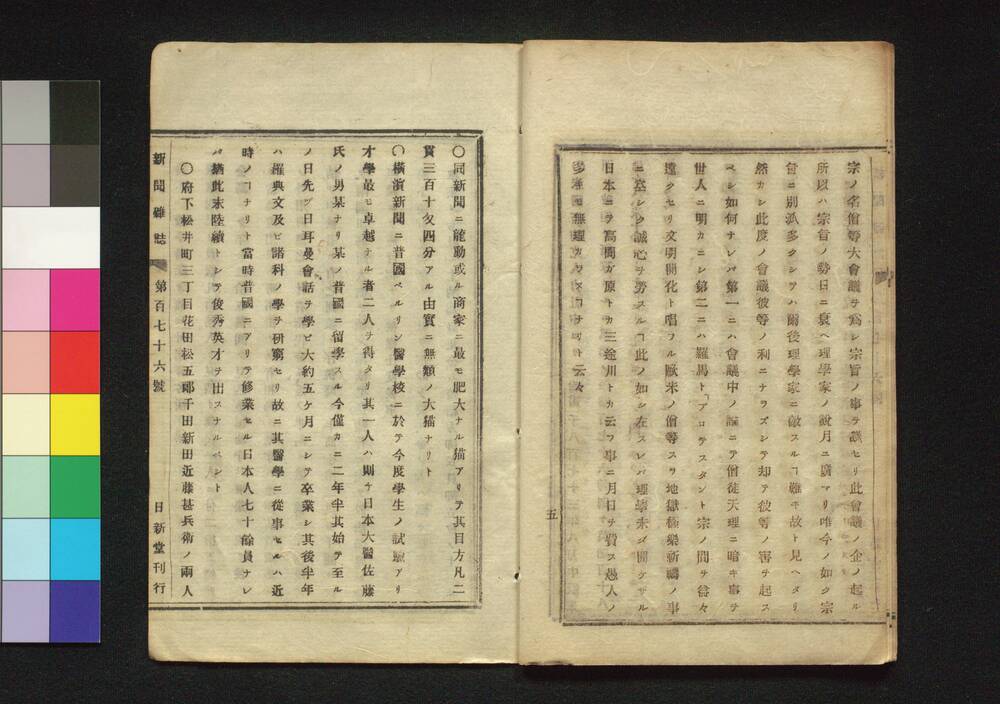 宗ノ名僧等大會議ヲ爲シ宗旨ノ事ヲ議セリ此會議ノ企ノ起ル
所以ハ宗旨ノ勢日ニ衰ヘ理學家ノ說月ニ廣マリ唯今ノ如ク宗
旨ニ別派多クシテハ爾後理學家ニ敵スルヿ難キ故ト見ヘタリ
然カシ此度ノ會議彼等ノ利ニナラズシテ却テ彼等ノ害ヲ起ス
ベシ如何ナレバ第一ニハ會議中ノ論ニテ僧徒天理ニ暗キ事ヲ
世人ニ明カニシ第二ニハ羅馬ト「プロテスタント宗ノ間ヲ益々
遠クセリ文明開化ト唱フル歐米ノ僧等スラ地獄極樂祈禱ノ事
ニ空シク誠心ヲ勞スルヿ此ノ如シ在スレバ理學未ダ開ケザル
日本ニテ高間ガ原トカ三途川トカ云フ事ニ月日ヲ費ス愚人ノ
多キモ無理カラヌヿナリト云々
五
〇同新聞ニ龍動或ル商家ニ最モ肥大ナル猫アリテ其目方凡二
貫三百十匁四分アル由實ニ無類ノ大猫ナリト
〇橫濱新聞ニ普國ベルリン醫學校ニ於テ今度學生ノ試驗アリ
才學最モ卓越ナル者二人ヲ得タリ其一人ハ則チ日本大醫佐藤
氏ノ男某ナリ某ノ普國ニ留學スル今僅カニ二年半其始テ至ル
ノ日先ヅ日耳曼會話ヲ學ビ大約五ケ月ニシテ卒業シ其後半年
ハ羅典文及ビ諸科ノ學ヲ硏窮セリ故ニ其醫學ニ從事セルハ近
時ノヿナリト當時普國ニアリテ修業セル日本人七十餘員ナレ
バ猶此末陸續トシテ後秀英才ヲ出スナルベシト
〇府下松井町三丁目花田松五郎千田新田近藤甚兵衛ノ兩人
新聞雜誌 第百七十六號 日新堂刊行